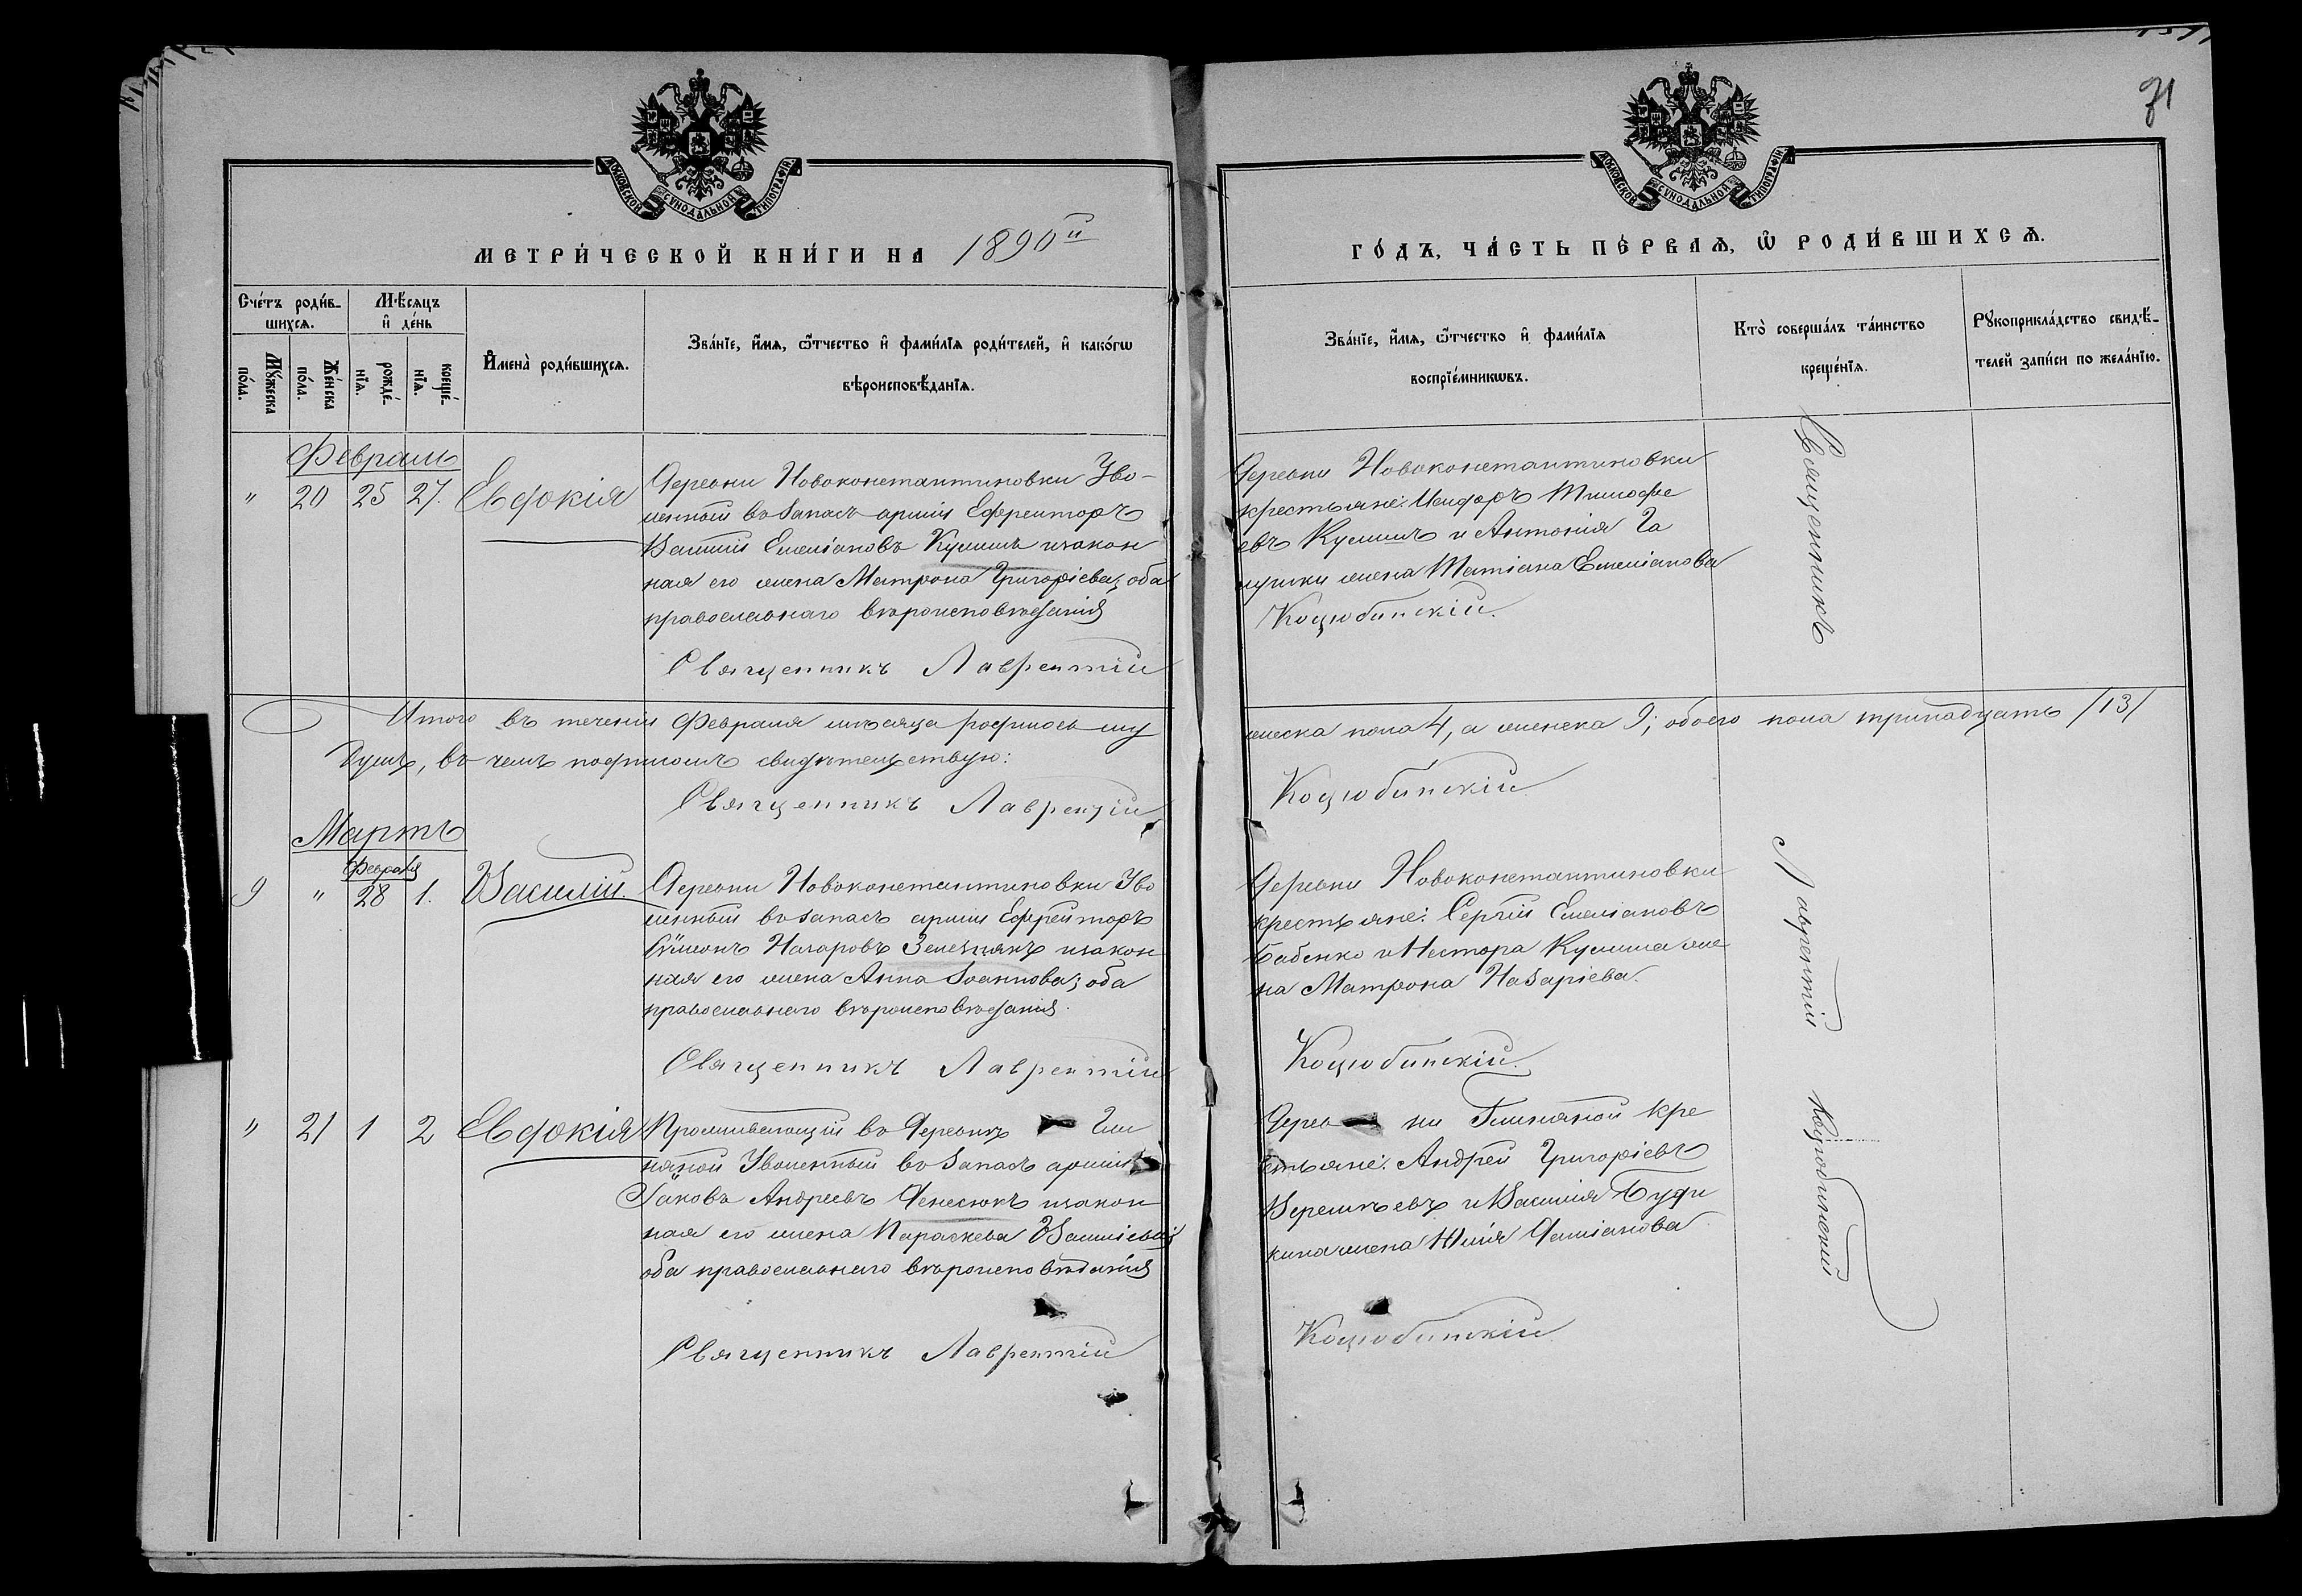 71
МОСКОВСКОЙ СѴНОДАЛЬНОЙ ТИПОГРАФІИ
МОСКОВСКОЙ СѴНОДАЛЬНОЙ ТИПОГРАФІИ
МЕТРИ́ЧЕСКОЙ КНИ́ГИ НА 1890й
ГО́ДЪ, ЧА́СТЬ ПЕ́РВАѦ, Ѿ РОДИ́ВШИХСѦ.
Сче́тъ роди́в-
шихсѧ.
Мѣ́сѧцъ
и҆ де́нь
Мꙋ́жеска по́ла.
Же́нска по́ла.
рожде́-
нїѧ.
креще́-
нїѧ.
И҆мена̀ роди́вшихсѧ.
Зва́нїе, и҆́мѧ, ѻ҆́тчество и҆ фами́лїѧ роди́телей, и҆ како́гѡ
вѣроисповѣ́данїѧ.
Зва́нїе, и҆́мѧ, ѻ҆́тчество и҆ фами́лїѧ
воспрїе́мникѡвъ.
Кто̀ соверша́лъ та́инство
креще́нїѧ.
Рꙋкоприкла́дство свидѣ́-
телей за́писи по жела́нїю.
Февраль
" 20 25 27. Евдокія
Деревни Новоконстантиновки Уво-
ленный въ запасъ арміи Ефрейторъ
Василій Емеліановъ Кулишъ и закон
ная его жена Матрона Григоріева, оба
православнаго вѣроисповѣданія
Священникъ Лаврентій
Деревни Новоконстантиновки
крестьяне: Исидоръ Тимофе
евъ Кулишъ и Антонія Га
жена Татіана Емеліанова
Коцюбинскій.
Священникъ
Итого въ теченіи Февраля мѣсяца родилось му
жеска пола 4, а женска 9; обоего пола тринадцать /13/
душъ, въ чемъ подписомъ свидѣтельствую:
Священникъ Лаврентій
Коцюбинскій
Мартъ
Февраля
9 " 28 1. Василій.
Деревни Новоконстантиновки Уво
ленный въ запасъ арміи Ефрейторъ
Сѵмеонъ Назаровъ Железнякъ и закон
ная его жена Анна Іоаннова; оба
православнаго вѣроисповѣданія.
Священникъ Лаврентій
Деревни Новоконстантиновки
крестьяне: Сергій Емеліановъ
Бабенко и Нестора Кулиша же
на Матрона Назаріева.
Коцюбинскій.
Лаврентій
" 21 1 2 Евдокія
Проживающій въ Деревнѣ Гли
няной Уволенный въ запасъ арміи
Іаковъ Андреевъ Денесюкъ и закон
ная его жена Параскева Василіева;
оба православнаго вѣроисповѣданія
Священникъ Лаврентій
Дерев ни Глиняной кре
стьяне: Андрей Григоріевъ
и Василія Буд
кина жена Юлія Даміанова
Коцюбинскій
Коцюбинскій